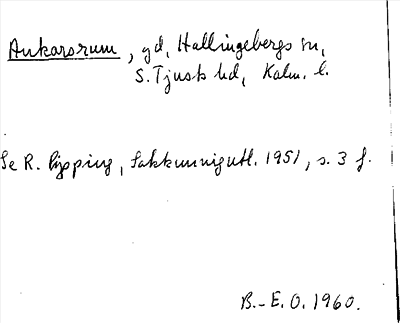 Ankarsrum, gd, Hallingebergs sn,
S. Tjusts hd, Kalm. l.
Se R. Pipping, Sakkunnigutl. 1951, s. 3 f.
B.-E. O. 1960.